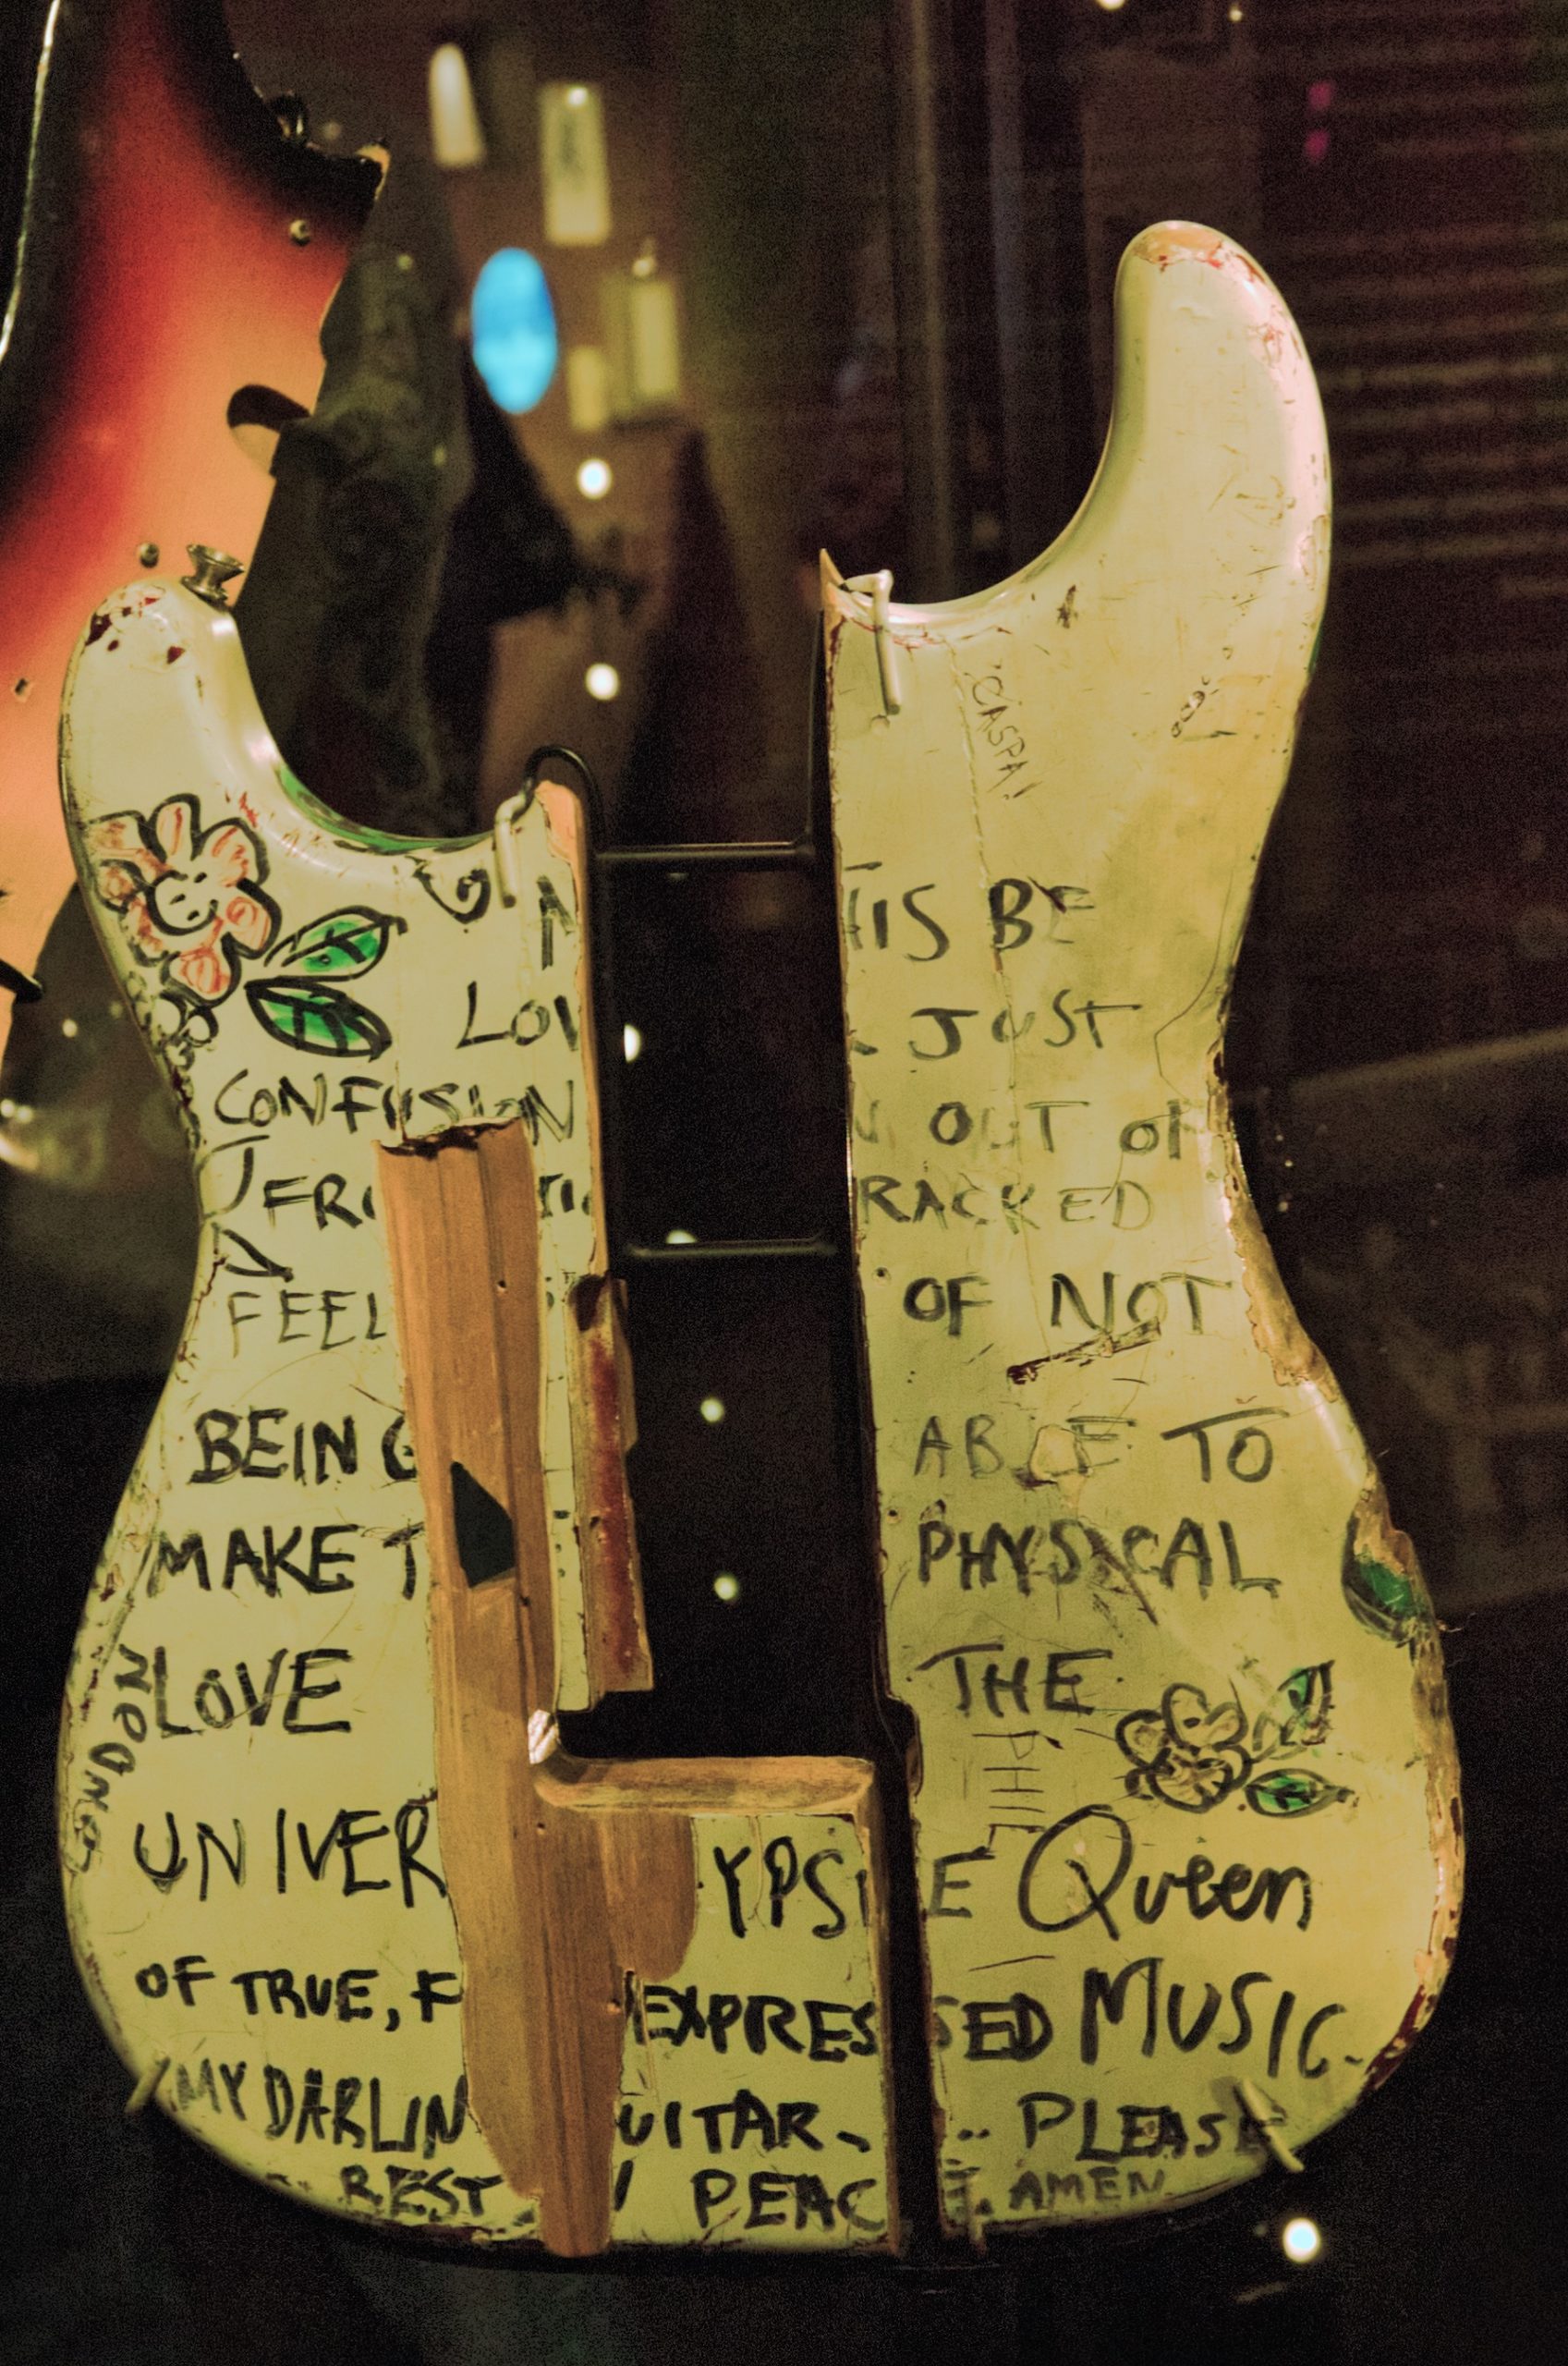 CASPA!
HIS BE
LOV JUST
CONFUSION OUT OF
FR RACKED
FEEL OF NOT
BEING ABLE TO
MAKE T PHYSICAL
LOVE THE
PHIL
UNIVER YPSI E Queen
OF TRUE, F EXPRESSED MUSIC.
MY DARLIN UITAR... PLEASE
REST PEACE. AMEN